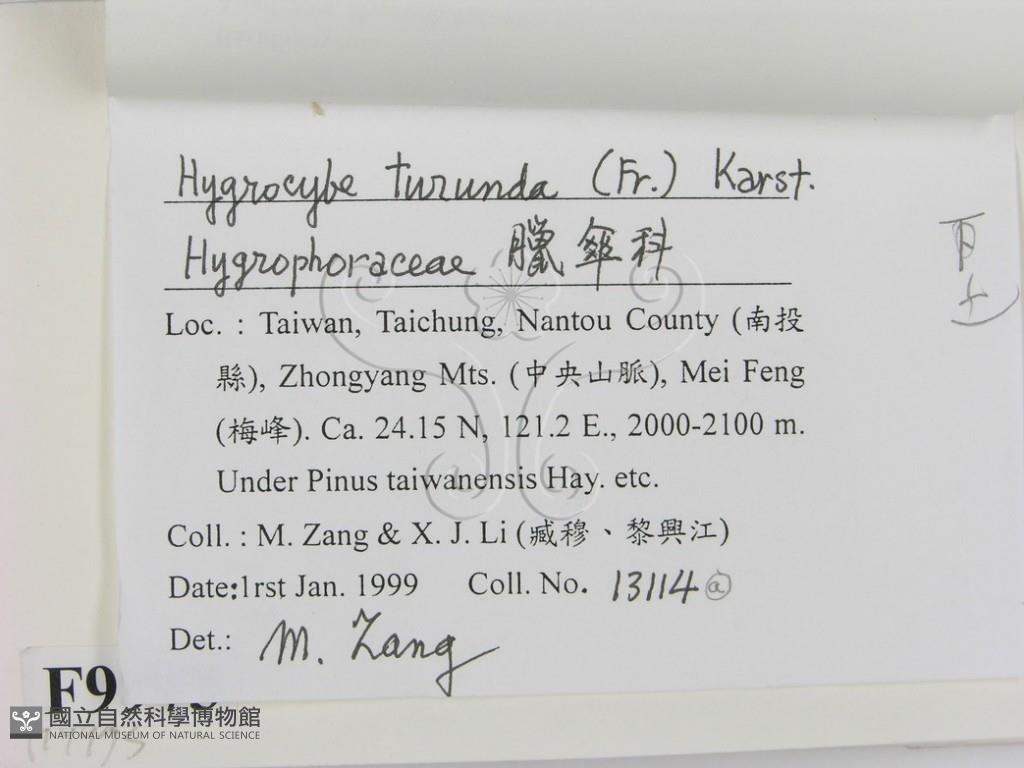 Hygrocybe turunda (Fr.) Karst.
Hygrophoraceae 臘傘科
Loc. : Taiwan, Taichung, Nantou County (南投
縣), Zhongyang Mts. (中央山脈), Mei Feng
(梅峰). Ca. 24.15 N, 121.2 E., 2000-2100 m.
Under Pinus taiwanensis Hay. etc.
Coll. : M. Zang & X. J. Li (臧穆、黎興江)
Date:1rst Jan. 1999 Coll. No. 13114 ⓐ
Det.: M. Zang
F9
國立自然科學博物館
NATIONAL MUSEUM OF NATURAL SCIENCE